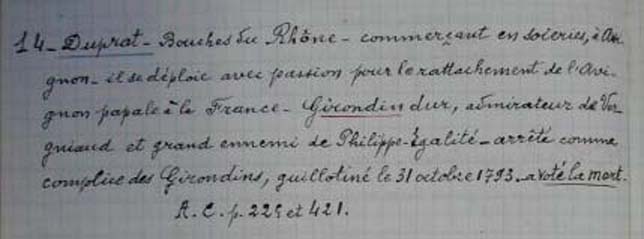 14_ Duprat_ Bouches du Rhône - commerçant en soieries, à Avi-
gnon - il se déploie avec passion pour le rattachement de l'Avi-
gnon papale à la France - Girondin dur, admirateur de Ver-
gniaud et grand ennemi de Philippe-Égalité - arrêté comme
complice des Girondins, guillotiné le 31 octobre 1793. a voté la mort.
A. C. p. 229 et 421.